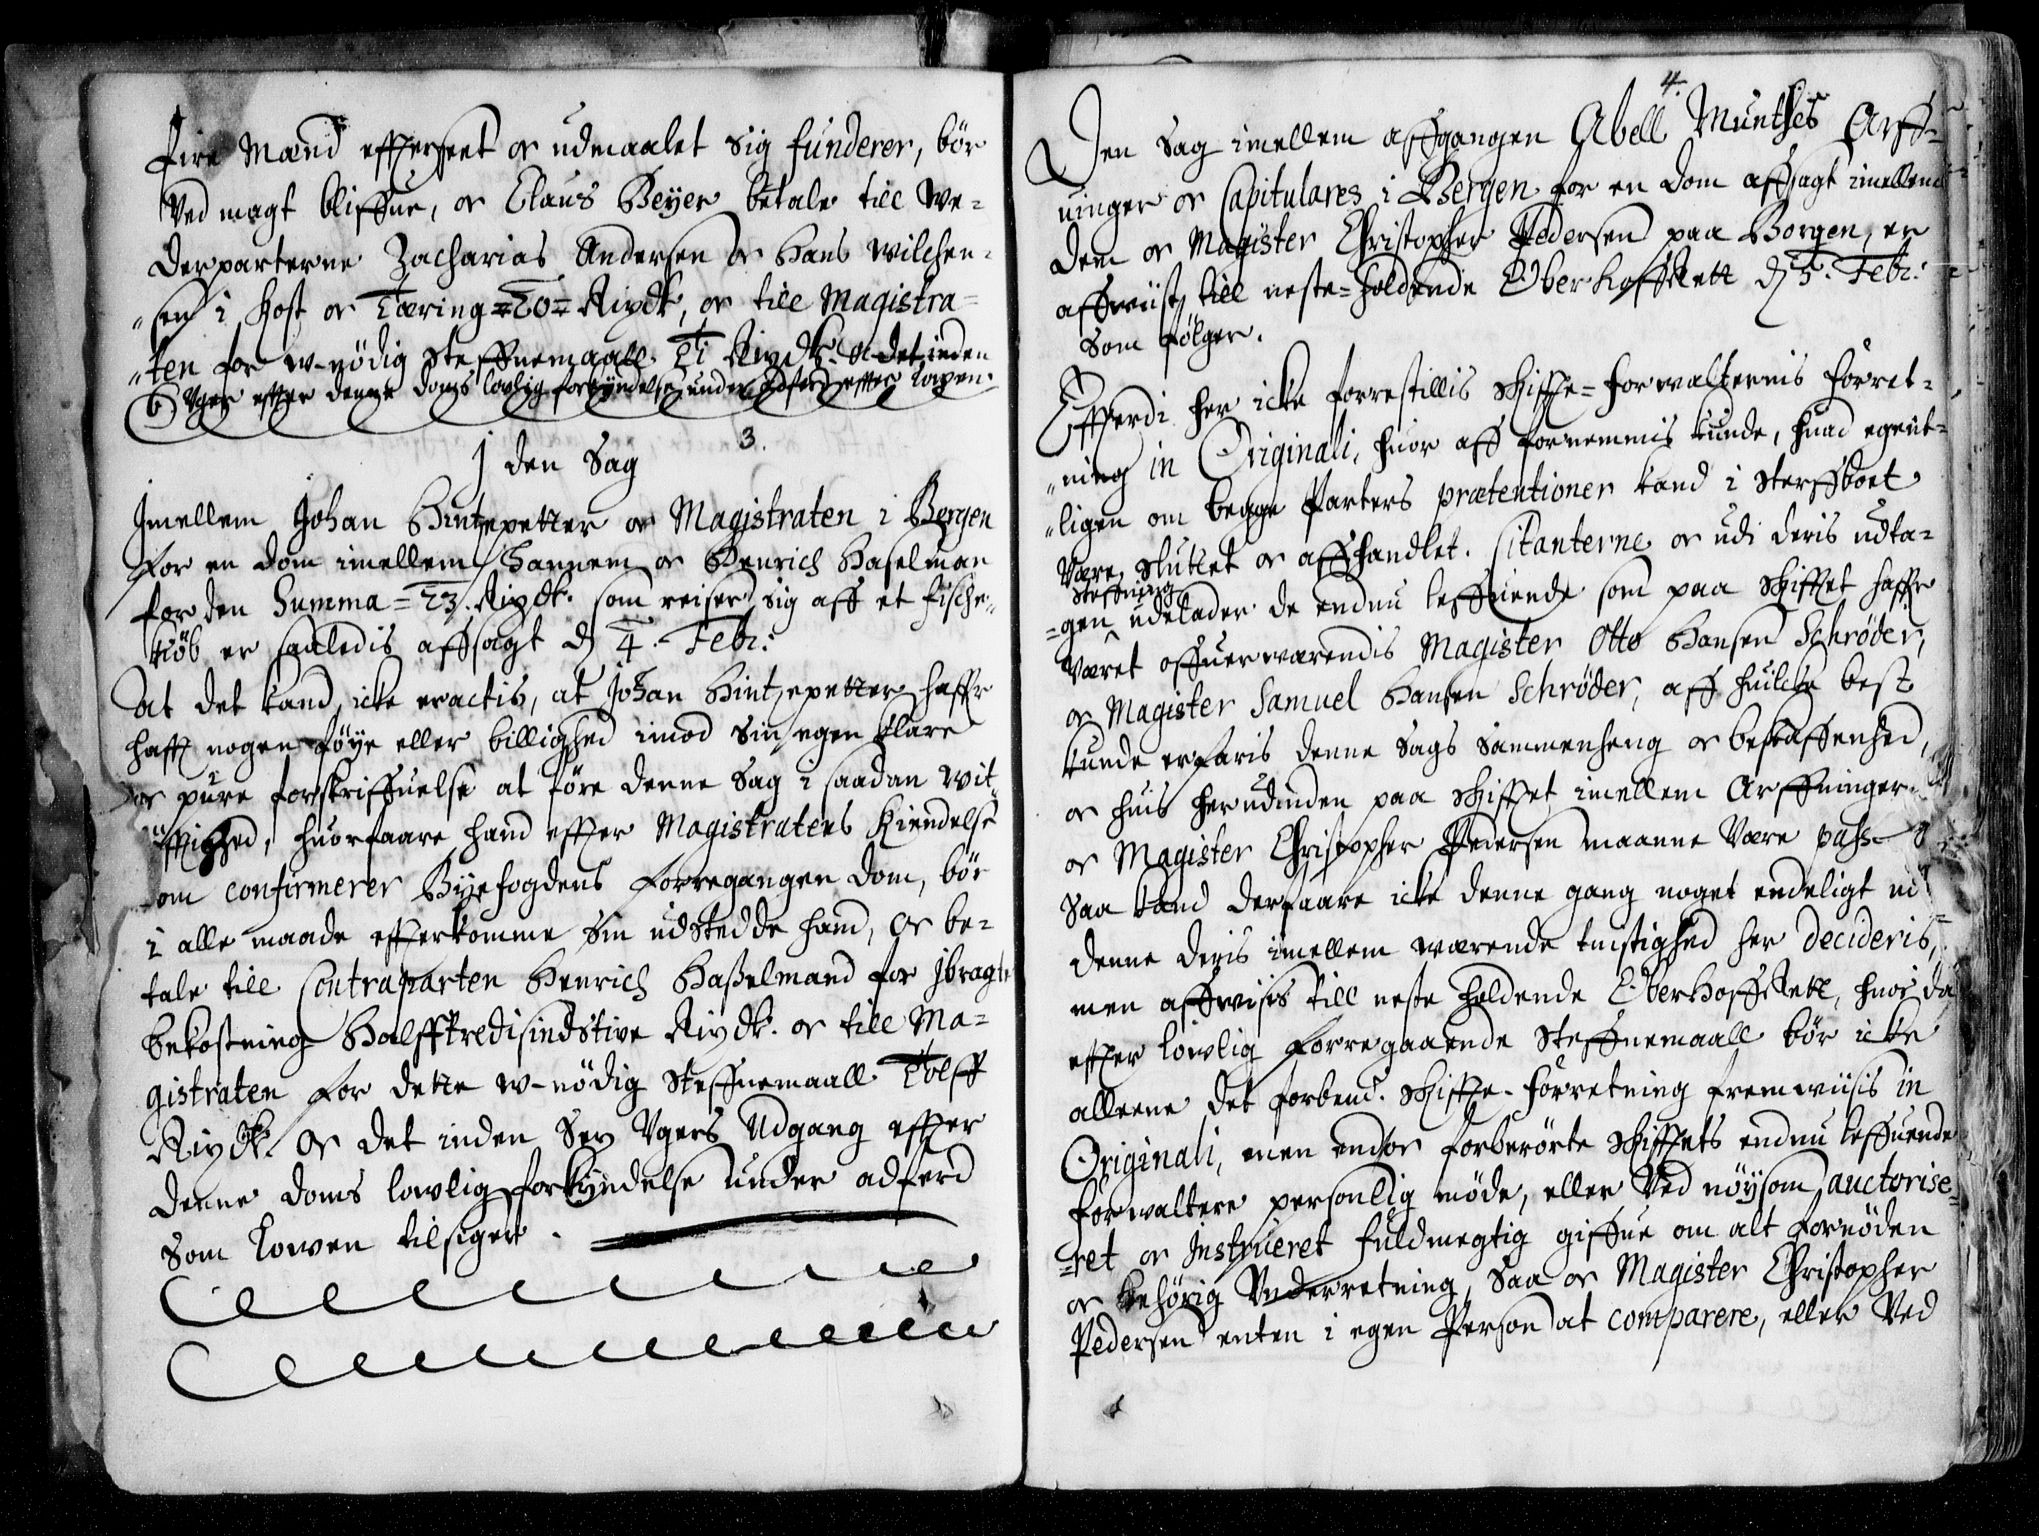 fire Mænd effterseet or udmaalet sig funderer, bør
Ved magt bliffue, or Claus Beyer betale till We-
derparterne Zacharias Andersen or Hans Wilchen-
"sen i Kost or Tæring =20= Rixdlr, or till Magistra-
"ten for w-nödig Steffnemaall. Ti Rixdlr. or det inden
6 Vger effter denne doms lovlig forkyndelse under adferd effter Lowen.
3.
J den Sag
Jmellem Johan Hintzepetter or Magistraten i Bergen
for en dom imellem hannem or Henrich Haselman
for den Summa = 23. Rixdlr. som reiser sig aff et fische-
kiöb er saaledis affsagt d 4. Febr:
At det kand icke eractis, at Johan Hintzepetter haffr
hafft nogen föye eller billighed imod sin egen klare
or pure forskriffuelse at före denne Sag i saadan Wit-
"ttighed, huorfaare hand effter Magistratens Kiendelse
som confirmerer Byefogdens forregangen dom, bör
i alle maade effterkomme sin udstedde hand, or be-
tale till Contraparten Henrich Haßelmand for jbragte
bekostning Halfftredisindstive Rixdlr. or till Ma-
gistraten for dette w-nödig Steffnemaall Tolff
Rixdlr. or det inden Sex Vgers Udgang effter
denne doms lowlig forkyndelse under adferd
som Lowen tilsiger.
4.
Den Sag imellem affgangen Abell Munthes Arff-
ninger or Capitulares i Bergen for en dom affsagt imellem
dem or Magister Christopher Pedersen paa Borgen, er
affwiist till neste-holdende Ober Hoffrett d 5. Febr:
Som fölger.
Efftterdi her icke forrestillis Skiffte-forwalternis forret-
"ning in Originali, huor aff fornemmis kunde, huad egent-
"ligen om begge Parters prætentioner kand i Sterffboet
Være sluttet or affhandlet. Citanterne or udi deris udta-
Steffning
=gen udelader de endnu leffuende som paa Skifftet haffr
Været offuerwærendis Magister Otto Hansen Schrøder,
or Magister Samuel Hansen Schrøder, aff huilcke best
kunde erfaris denne Sags Sammenheng or beskaffenhed,
or huis herudinden paa Skifftet imellem Arffninger
or Magister Christopher Pedersen maanne Være pass-
Saa kand derfaare icke denne gang noget endeligt ud
denne deris imellem wærende twistighed her decideris,
men affwises till neste holdende Oberhoffrett, huor da
effter lowlig forregaaende Steffnemaall bör icke
alleene det forbend. Skiffte-forretning fremwiisis in
Originali, men endor forberörte Skifftets endnu leffuende
forwaltere personlig möde, eller Ved nöysom auctorise-
=ret or Instrueret fuldmegtig giffue om alt fornöden
or behörig Vnderretning, Saa or Magister Christopher
Pedersen enten i egen Person at comparere, eller Ved